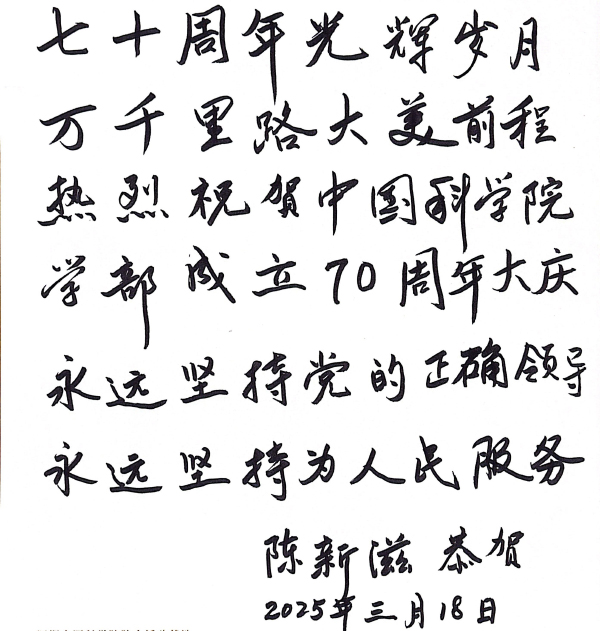 七十周年光辉岁月
万千里路大美前程
热烈祝贺中国科学院
学部成立70周年大庆
永远坚持党的正确领导
永远坚持为人民服务
陈新滋 恭贺
2025年三月18日